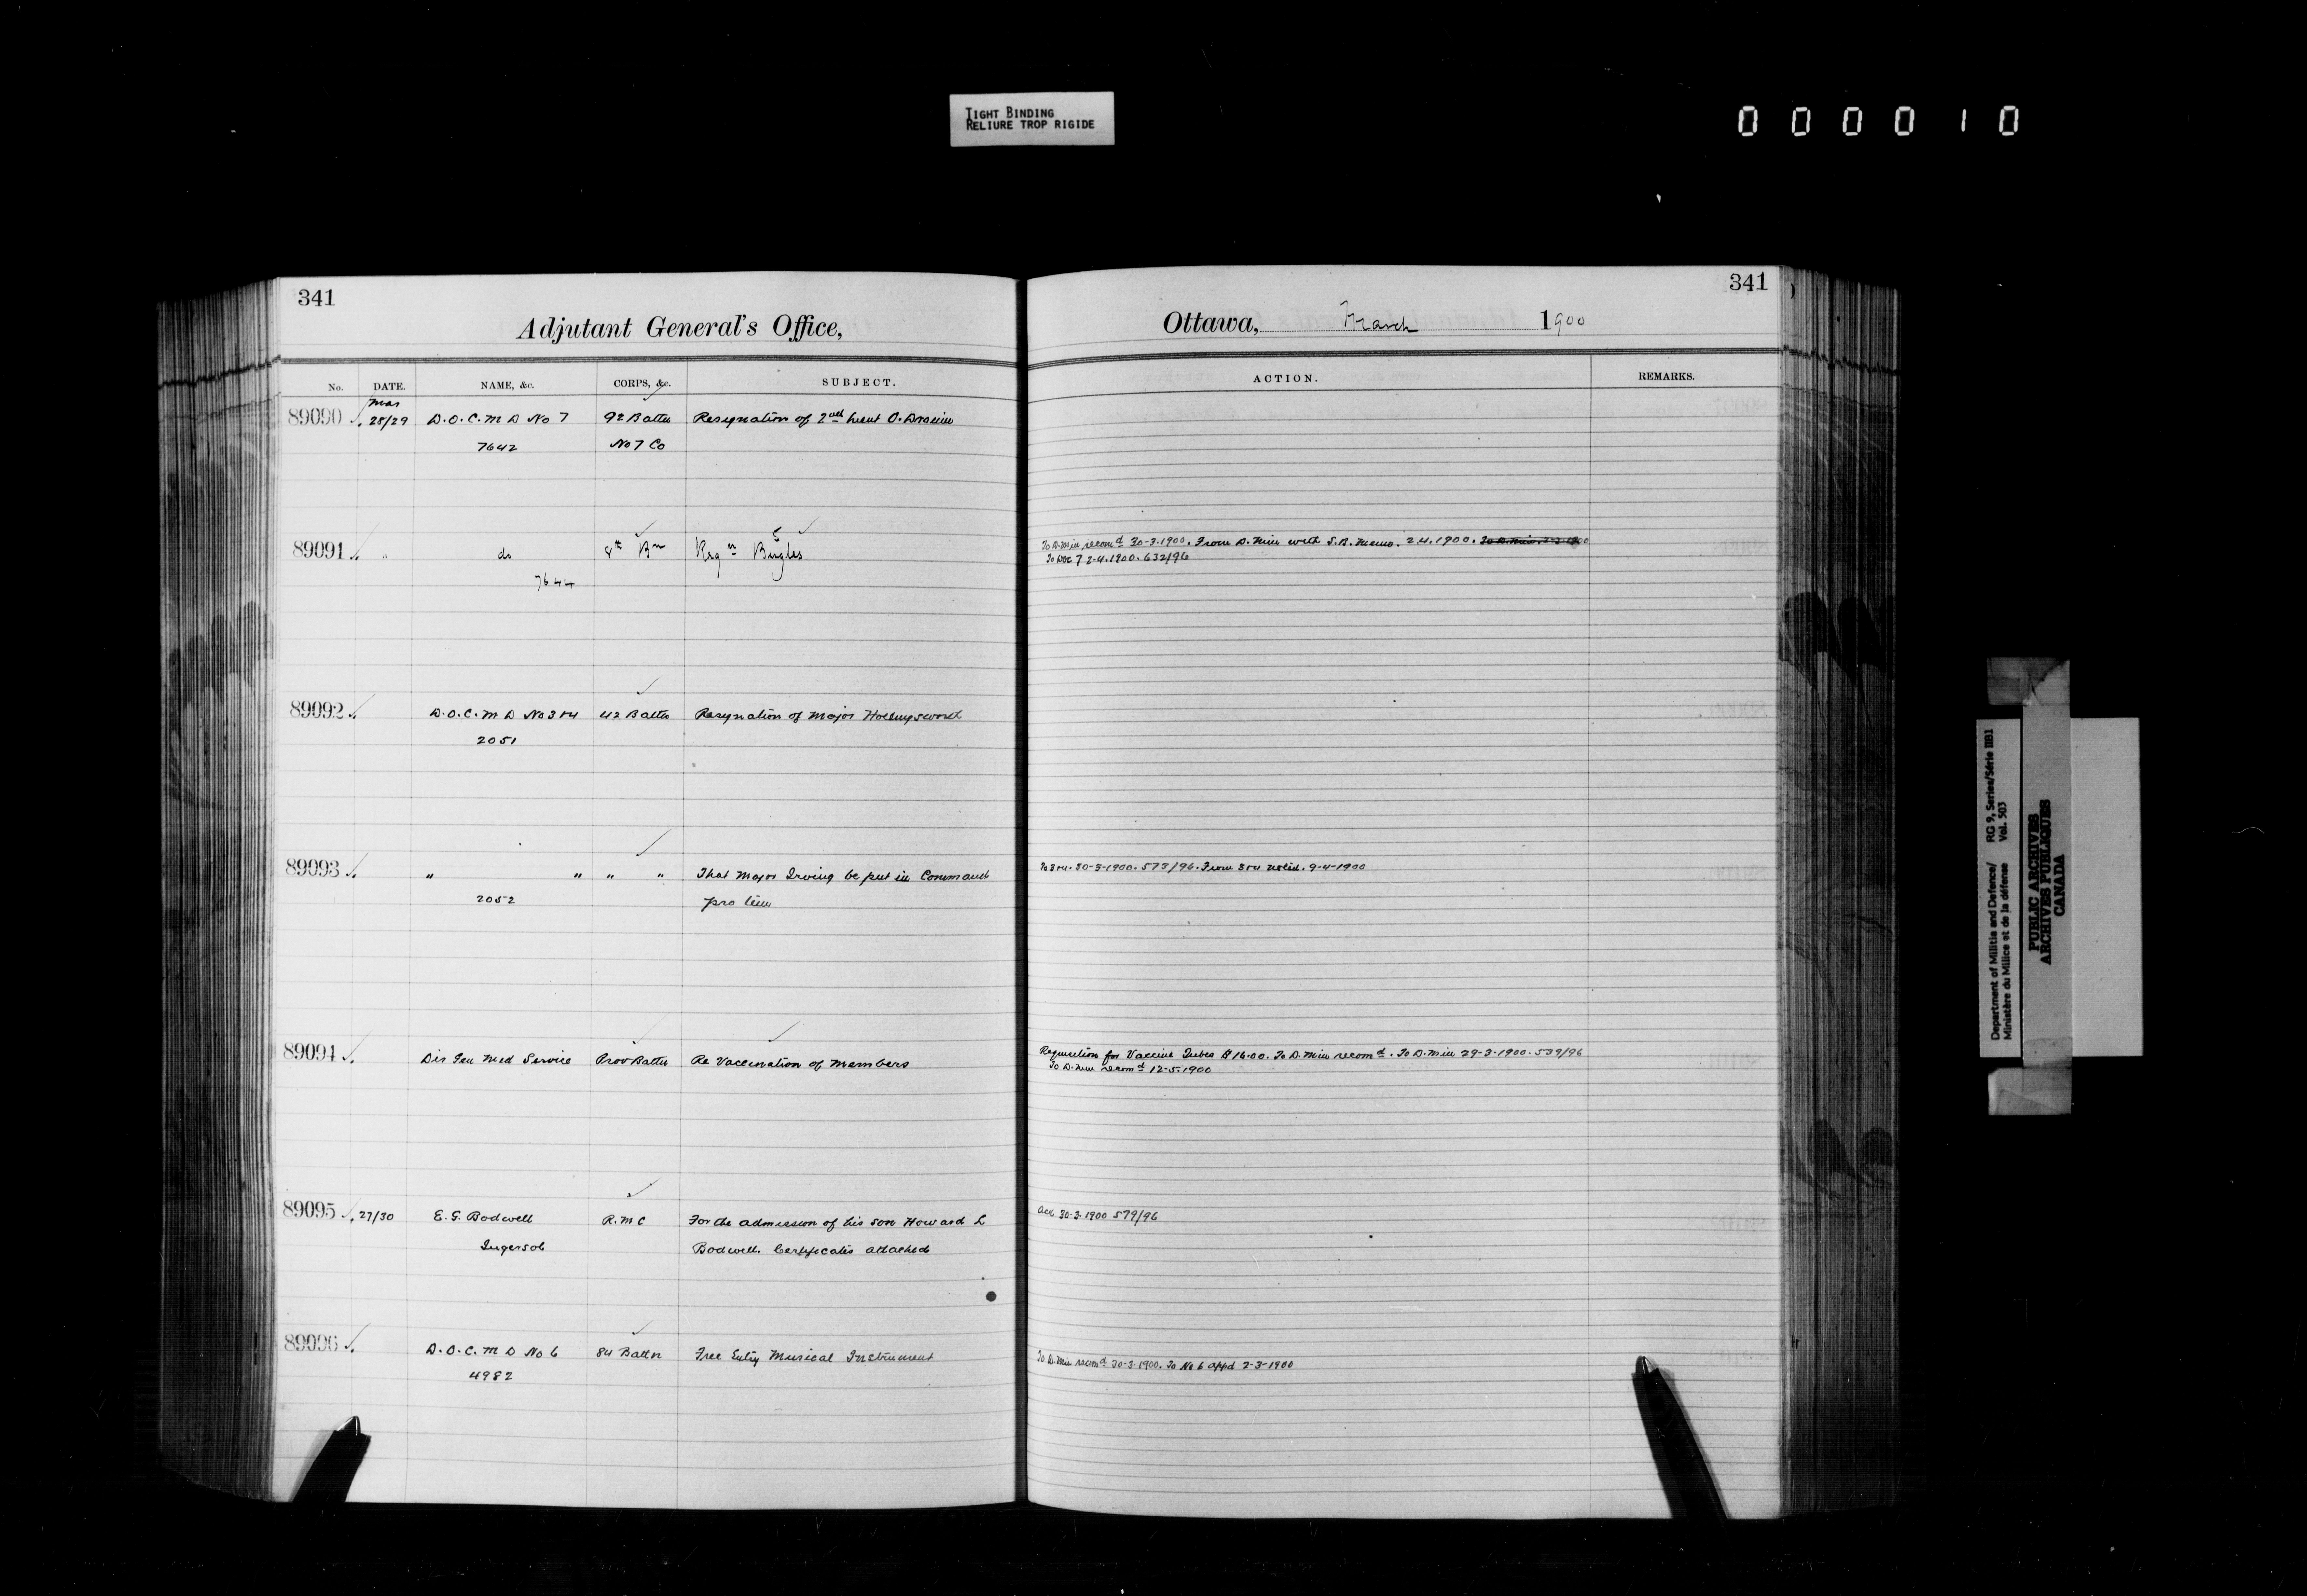 TIGHT BINDING
RELIURE TROP RIGIDE
000010
341
Adjutant General's Office,
No. DATE. NAME, &c. CORPS, &c. SUBJECT.
Mar
89090 28/29 D.O.C. M D No 7 92 Battn Resignation of 2nd Lieut O.
7642 No 7 Co
89091 " do 8th Bn Reqn Bugles
7644
89092 D.O.C. M D No 3 & 4 42 Battn Resignation of Major Hollingsworth
2051
89093 " " " " That Major Irving be put in Command
2052 pro tem
89094 Dir Gen Med Service Prov Battn Re Vaccination of Members
89095 27/30 E. G. Bodwell R.M C For the admission of his son Howard L
Ingersol Bodwell. Certificates attached
89096 D.O.C. M D No 6 84 Battn Free Entry Musical Instrument
4982
341
Ottawa, March 1900
ACTION. REMARKS.
To D. Min recomd 30-3-1900. From D. Min with S.B. Memo. 2.4.1900.
To DOC 7 2-4.1900. 632/96
To 3 & 4. 30-3-1900. 573/96. From 3 & 4 9-4-1900
Requisition for Vaccine Tubes $16.00. To D. Min recomd. To D. Min 29-3-1900. 539/96
To D. Min recomd 12-5.1900
Ack 30-3.1900 579/96
To D. Min recomd 30-3.1900. To No 6 appd 2-3-1900
Department of Militia and Defence/ RG 9, Series/Série IIB1
Ministère du Milice et de la défense Vol. 503
PUBLIC ARCHIVES
ARCHIVES PUBLIQUES
CANADA